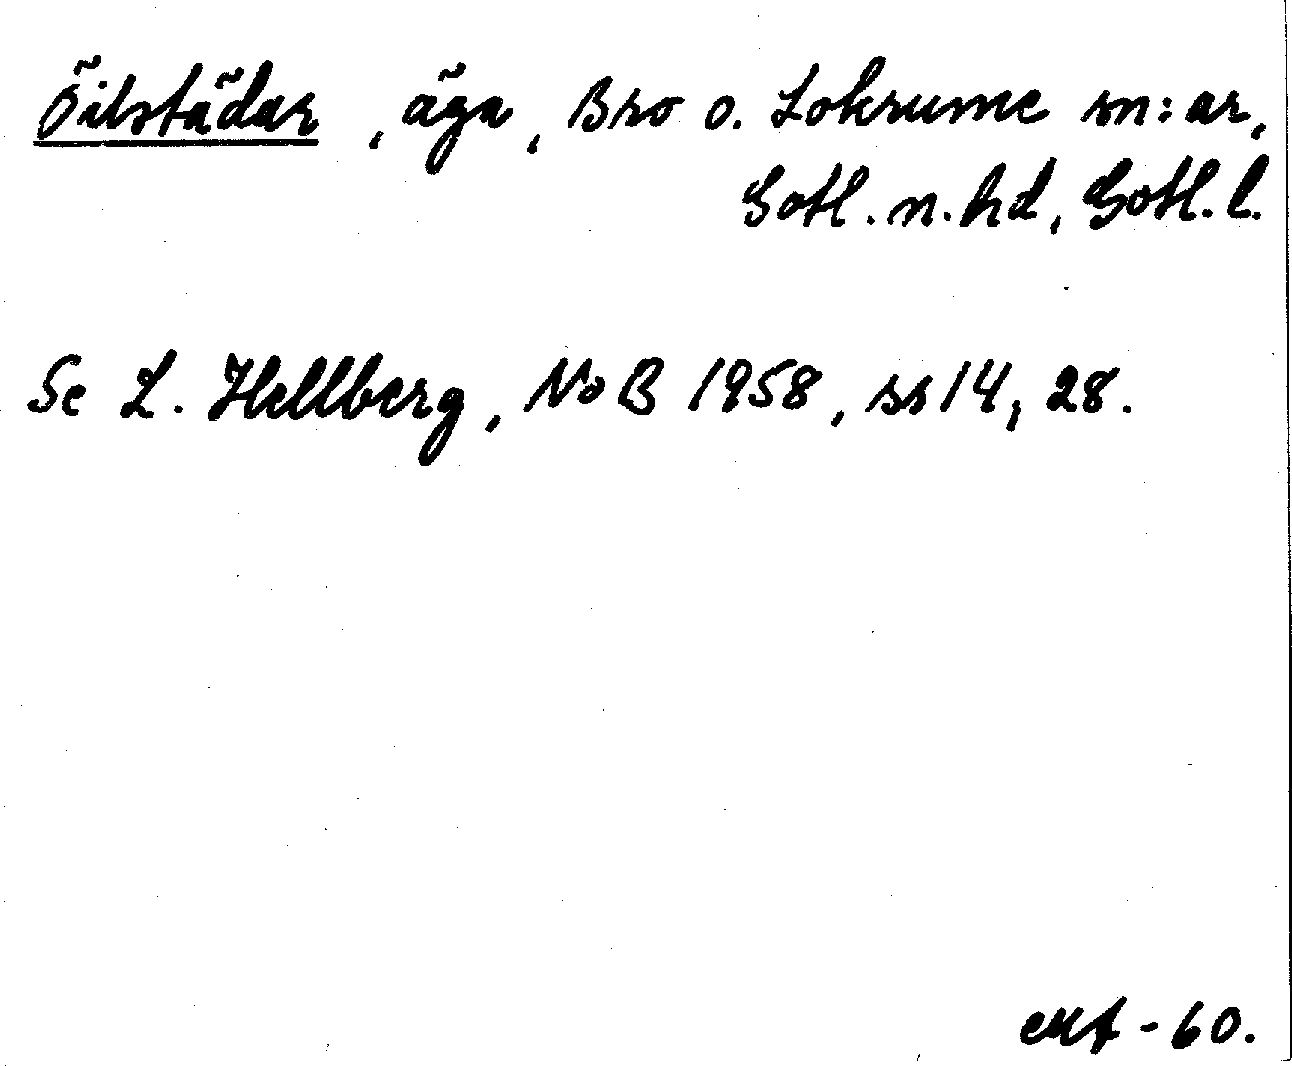 Öilstädar, äga, Bro o. Lokrume sn:ar,
Gotl. n. hd, Gotl. l.
Se L. Hellberg, NoB 1958, ss 14, 28.
-60.